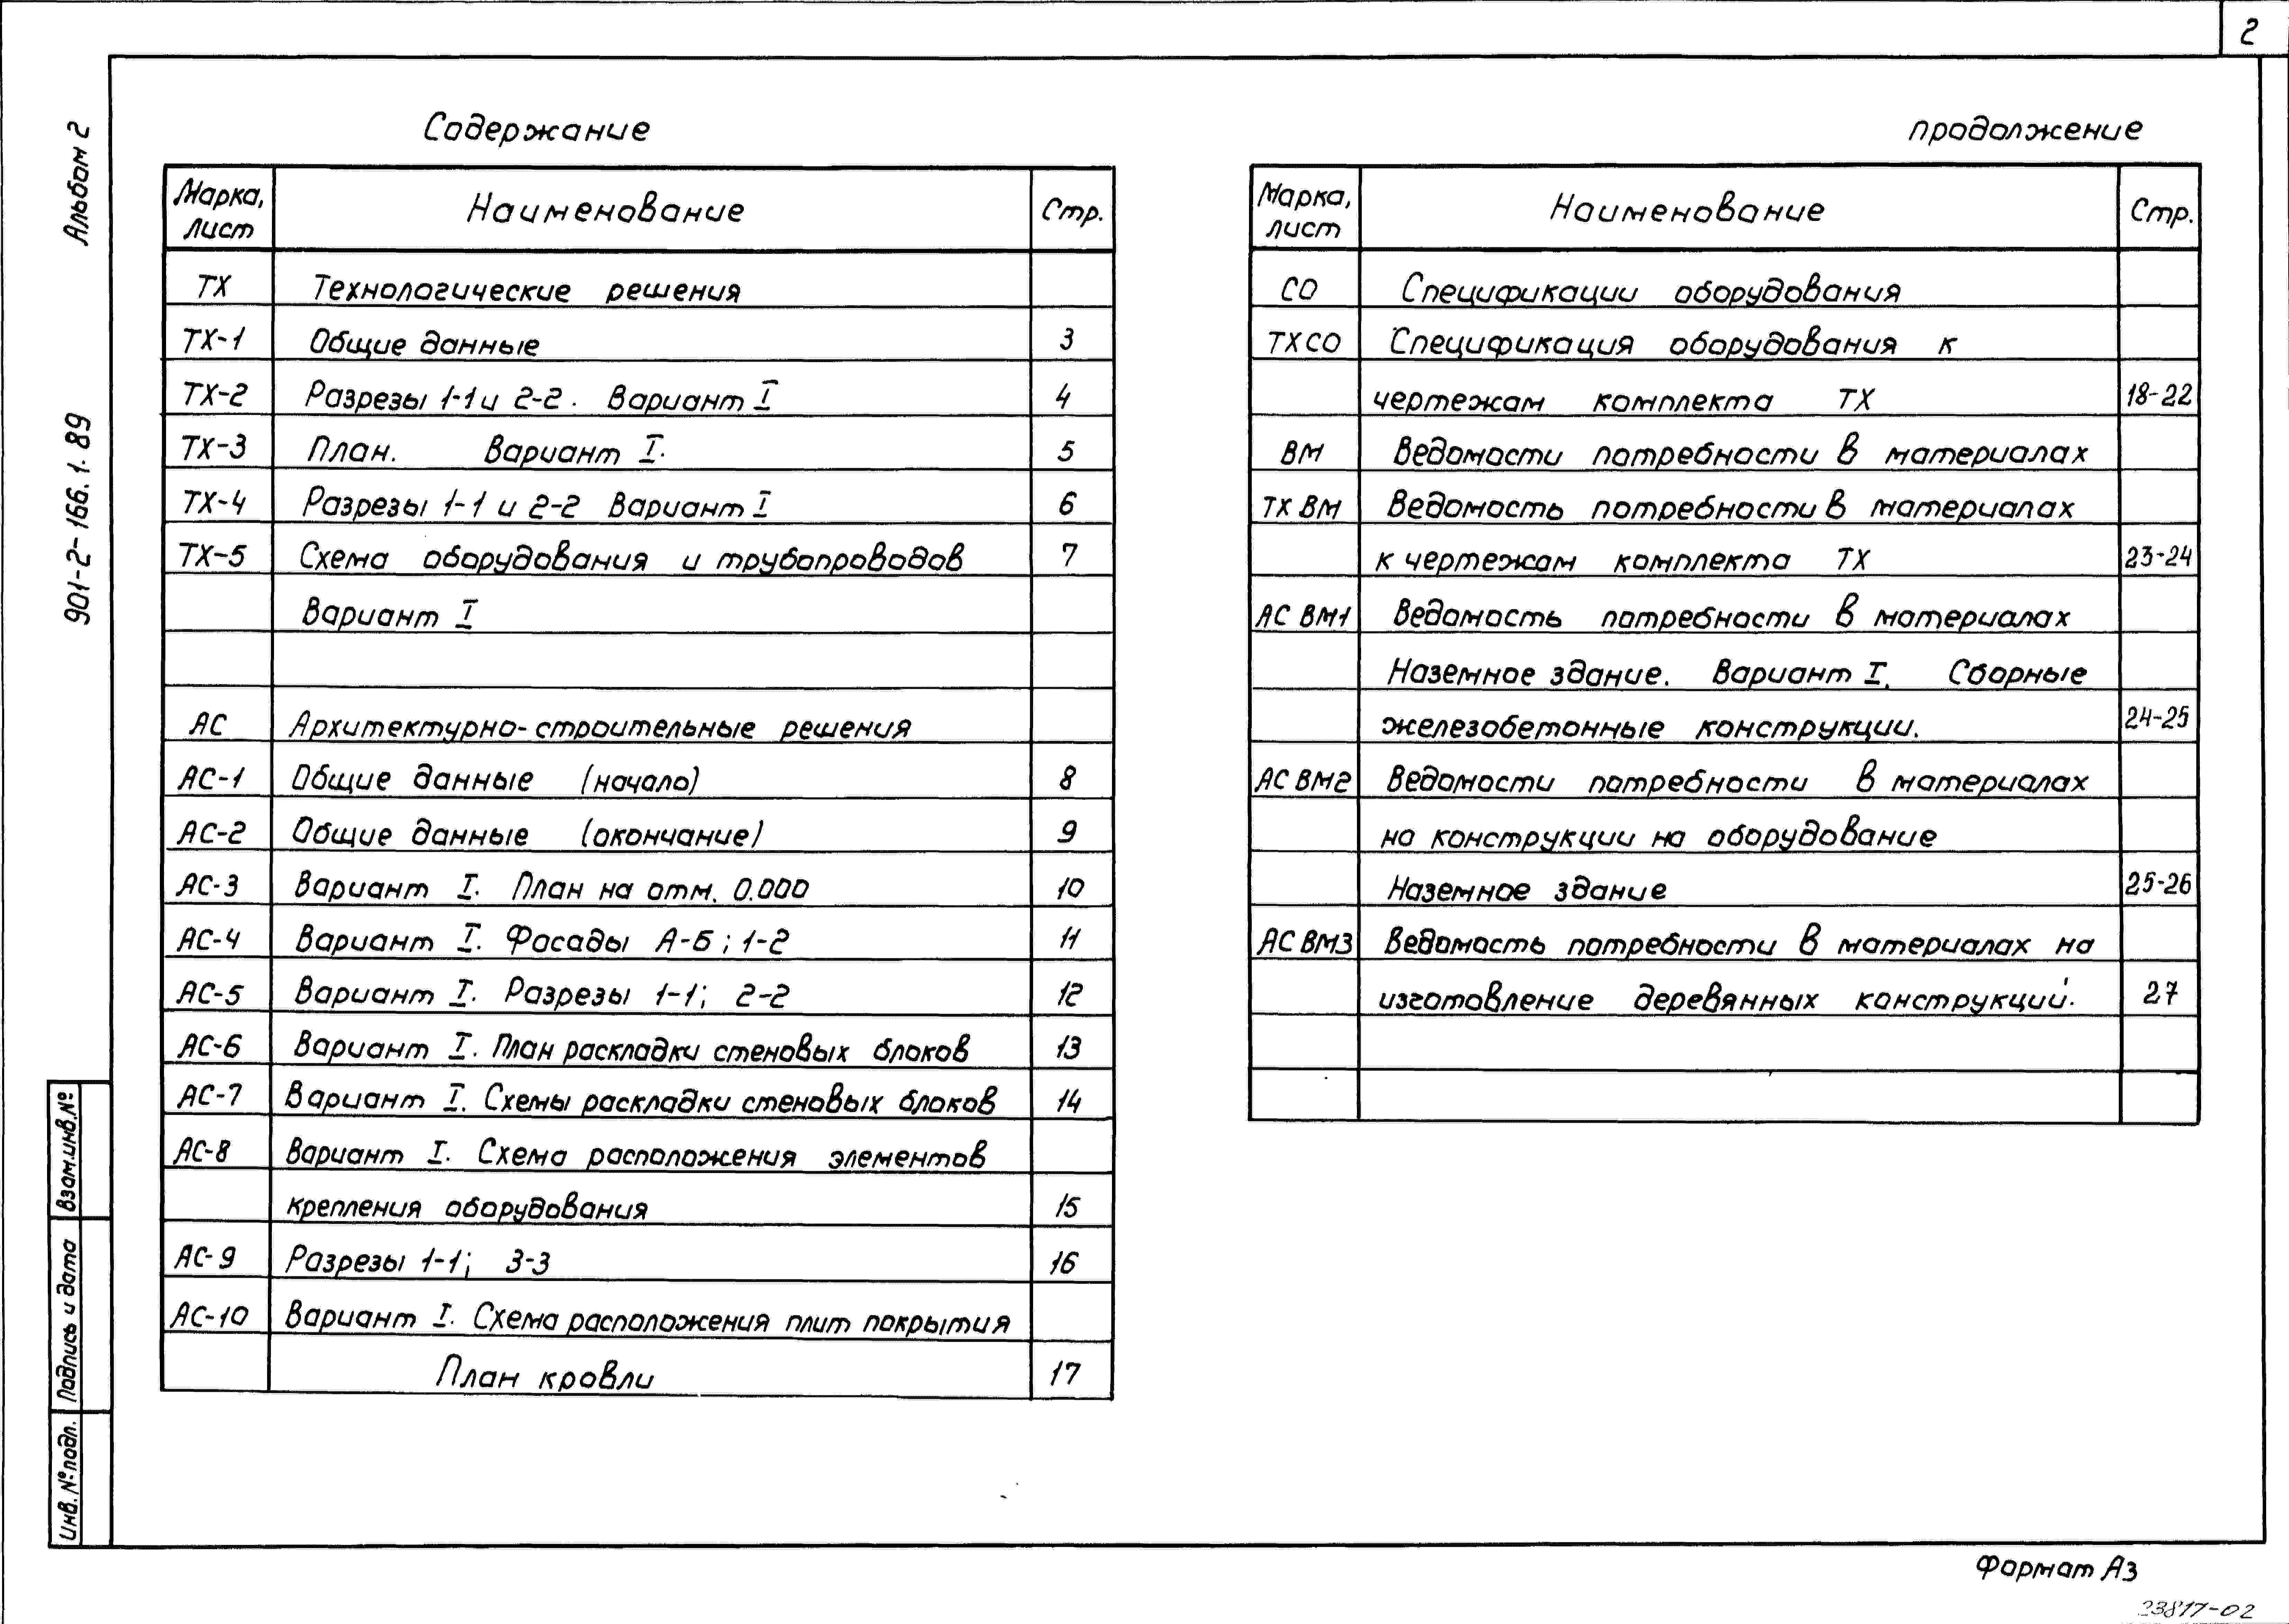 2
Альбом 2
901-2-166.1.89
Содержание
Марка, лист Наименование Стр.
ТХ Технологические решения
ТХ-1 Общие данные 3
ТХ-2 Разрезы 1-1 и 2-2. Вариант I 4
ТХ-3 План. Вариант I. 5
ТХ-4 Разрезы 1-1 и 2-2 Вариант I 6
ТХ-5 Схема оборудования и трубопроводов 7
Вариант I
АС Архитектурно-строительные решения
АС-1 Общие данные (начало) 8
АС-2 Общие данные (окончание) 9
АС-3 Вариант I. План на отм. 0.000 10
АС-4 Вариант I. Фасады А-Б; 1-2 11
АС-5 Вариант I. Разрезы 1-1; 2-2 12
АС-6 Вариант I. План раскладки стеновых блоков 13
АС-7 Вариант I. Схемы раскладки стеновых блоков 14
АС-8 Вариант I. Схема расположения элементов
крепления оборудования 15
АС-9 Разрезы 1-1; 3-3 16
АС-10 Вариант I. Схема расположения плит покрытия
План кровли 17
продолжение
Марка, лист Наименование Стр.
СО Спецификации оборудования
ТХСО Спецификация оборудования к
чертежам комплекта ТХ 18-22
ВМ Ведомости потребности в материалах
ТХ ВМ Ведомость потребности в материалах
к чертежам комплекта ТХ 23-24
АС ВМ1 Ведомость потребности в материалах
Наземное здание. Вариант I. Сборные
железобетонные конструкции. 24-25
АС ВМ2 Ведомости потребности в материалах
на конструкции на оборудование
Наземное здание 25-26
АС ВМ3 Ведомость потребности в материалах на
изготовление деревянных конструкций. 27
Взам.инв.№
Подпись и дата
Инв.№подл.
Формат А3
23817-02